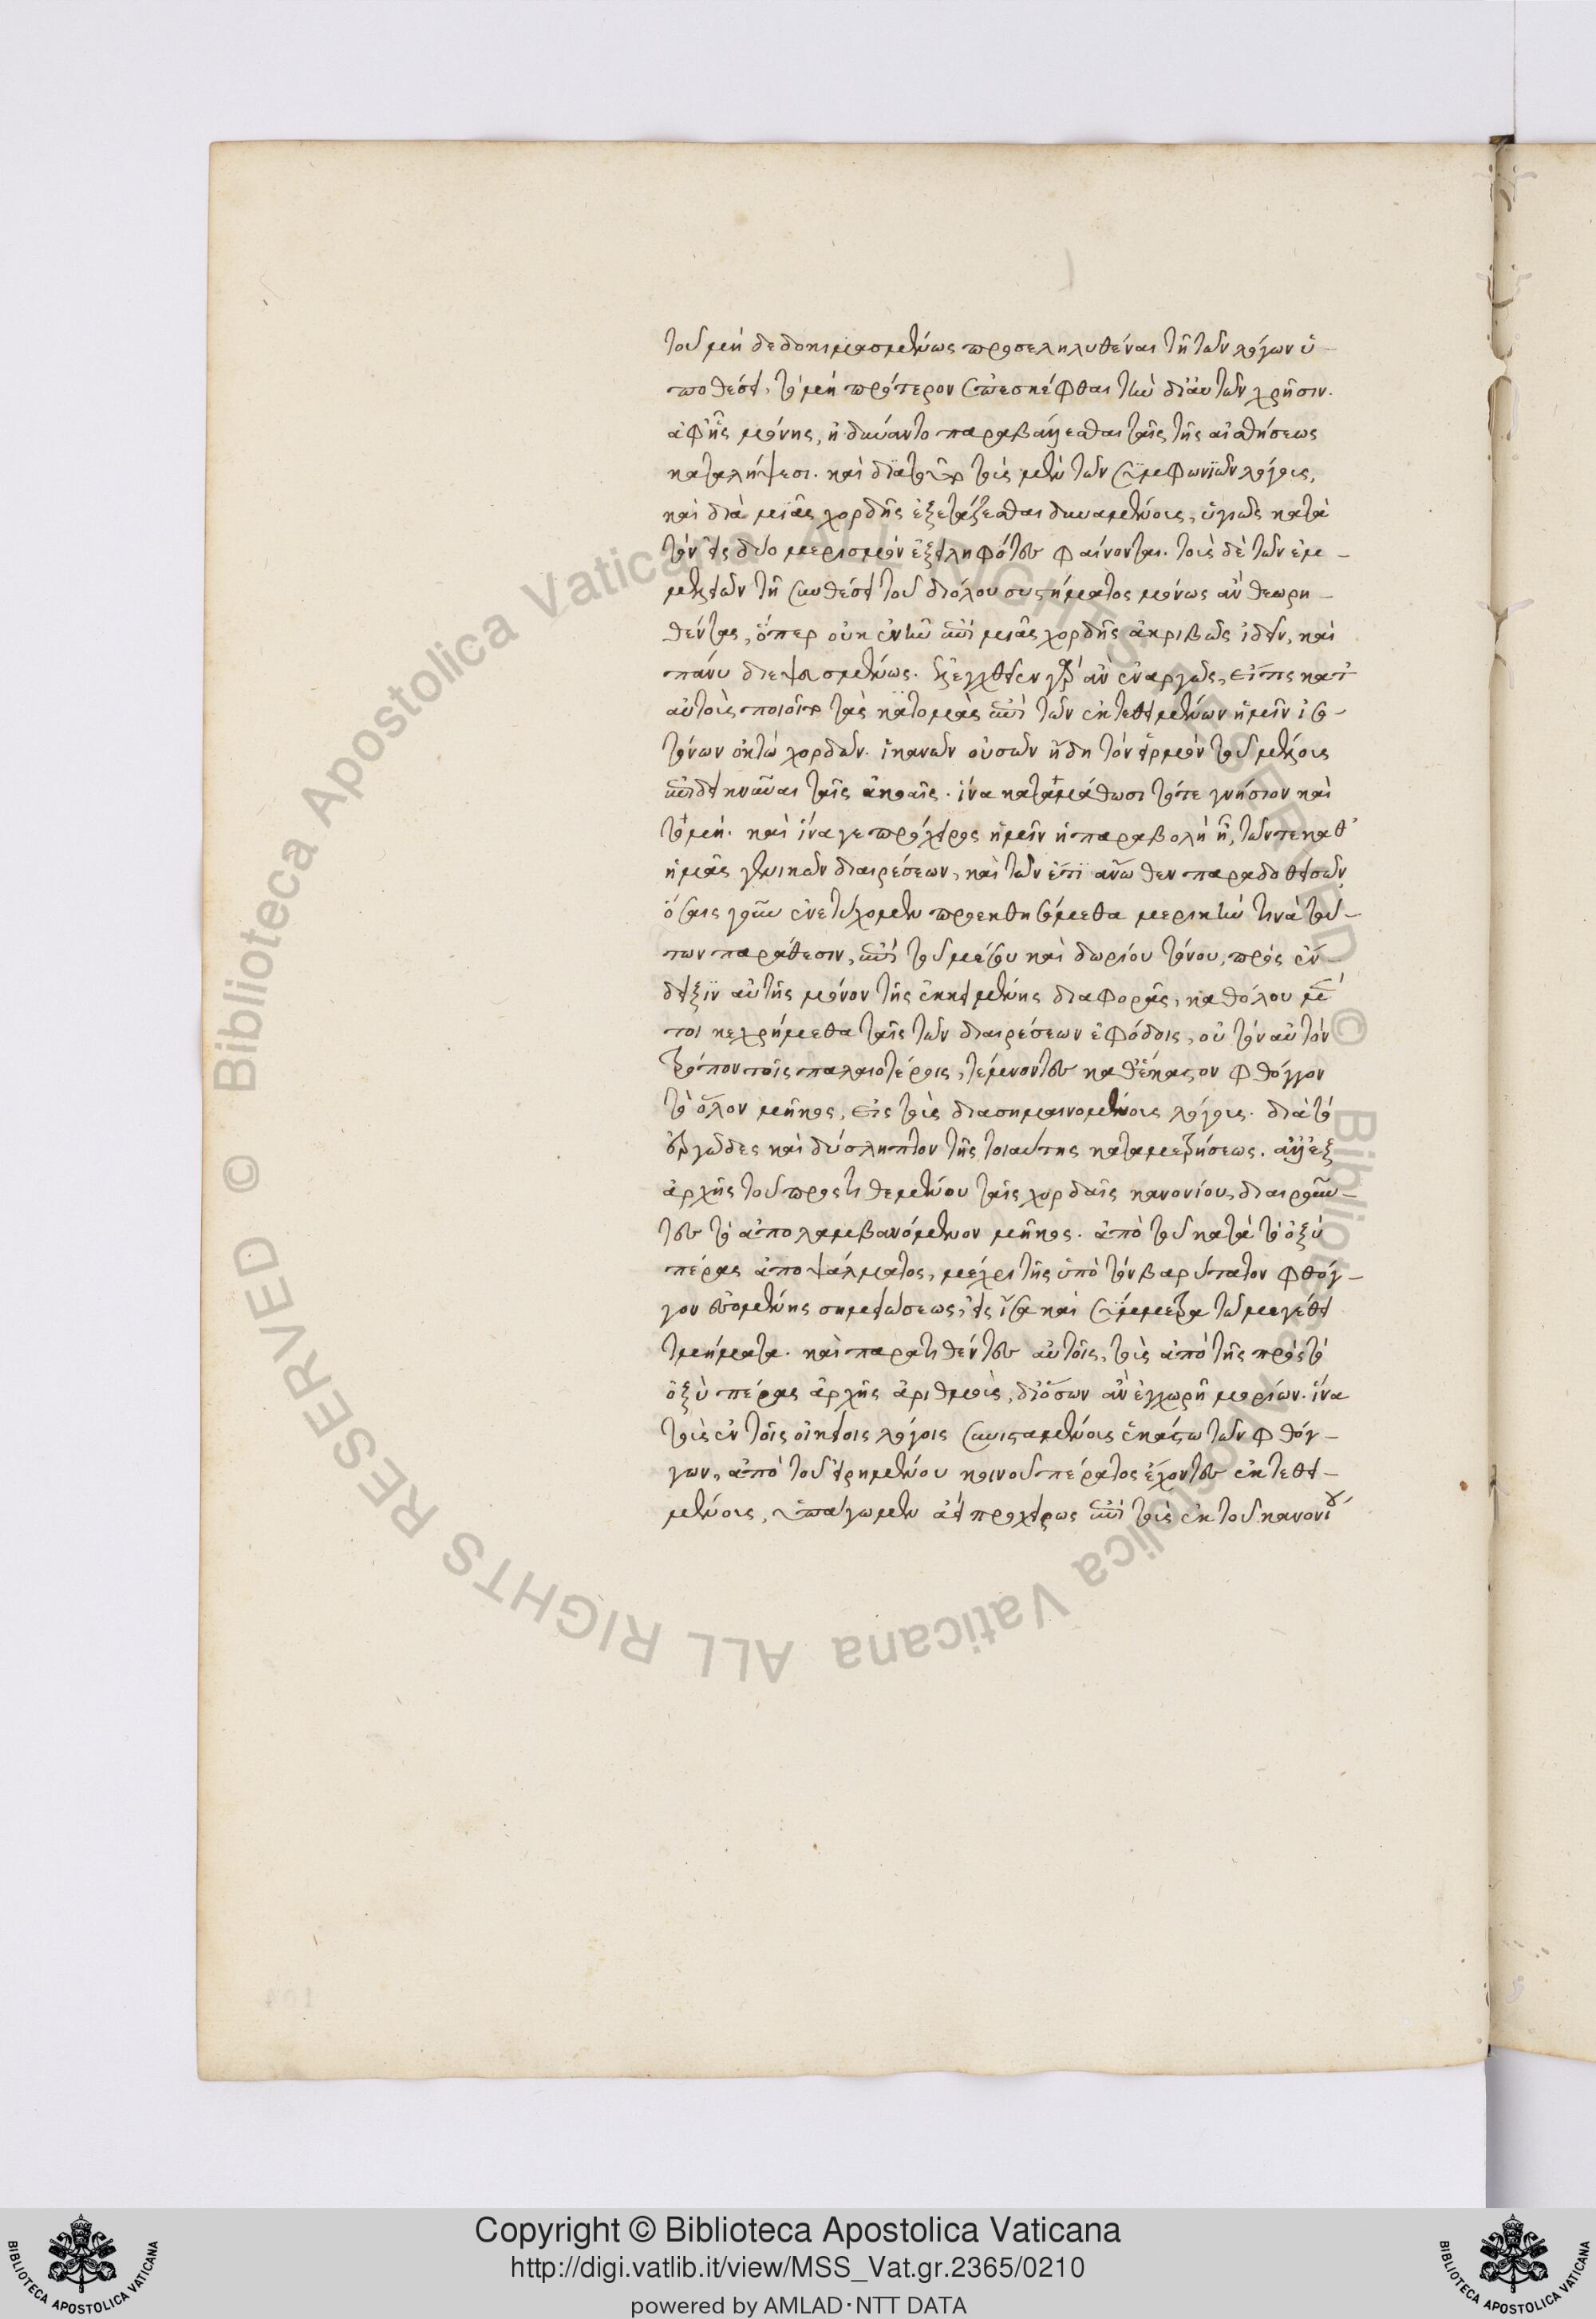 τοῦ μὴ δεδοκιμασμένως προσεληλυθέναι τῇ τῶν λόγων ὑ-
ποθέσει, τῷ μὴ πρότερον ἐπεσκέφθαι τὴν δι' αὐτῶν χρῆσιν.
ἀφ' ἧς μόνης, ἠδύναντο παραβάλλεσθαι ταῖς τῆς αἰσθήσεως
καταλήψεσι. καὶ διατοῦτο τοὺς μὲν τῶν συμφωνιῶν λόγους,
καὶ διὰ μιᾶς χορδῆς ἐξετάζεσθαι δυναμένους, ὑγιῶς κατὰ
τὸν εἰς δύο μερισμὸν ἐξειληφότες φαίνονται. τοὺς δὲ τῶν ἐμ-
μελειῶν τῇ συνθέσει τοῦ διόλου συστήματος μόνως ἂν θεωρη-
θέντας, ὅπερ οὐκ ἐνῆν ἐπὶ μιᾶς χορδῆς ἀκριβῶς ἰδεῖν, καὶ
πάνυ διεψευσμένως. ἐλεγχθεῖεν γὰρ ἂν ἐναργῶς, εἴ τις κατ'
αὐτοὺς ποιοῖτο τὰς κατομὰς ἐπὶ τῶν ἐκτεθειμένων ἡμῖν ἰσο-
τόνων ὀκτὼ χορδῶν. ἱκανῶν οὐσῶν ἤδη τὸν εἱρμὸν τοῦ μέλους
ἐπιδεικνύναι ταῖς ἀκοαῖς. ἵνα καταμάθωσι τό τε γνήσιον καὶ
τὸ μή. καὶ ἵνα γε πρόχειρος ἡμῖν ἡ παραβολὴ ᾖ, τῶν τε καθ'
ἡμᾶς γενικῶν διαιρέσεων, καὶ τῶν ἔτι ἄνωθεν παραδοθεισῶν
ὅσαις γοῦν ἐνετύχομεν προεκθησόμεθα μερικήν τινα τού-
των παράθεσιν, ἐπὶ τοῦ μέσου καὶ δωρίου τόνου, πρὸς ἔν-
δειξιν αὐτῆς μόνον τῆς ἐκκειμένης διαφορᾶς, καθόλου μέν
τοι κεχρήμεθα ταῖς τῶν διαιρέσεων ἐφόδοις, οὐ τὸν αὐτὸν
τρόπον τοῖς παλαιοτέροις, τέμνοντες καθ' ἕκαστον φθόγγον
τὸ ὅλον μῆκος, εἰς τοὺς διασημαινομένους λόγους. διὰ τὸ
ἐργῶδες καὶ δύσληπτον τῆς τοιαύτης καταμετρήσεως. ἀλλ' ἐξ
ἀρχῆς τοῦ προστιθεμένου ταῖς χορδαῖς κανονίου, διαιροῦν-
τες τὸ ἀπολαμβανόμενον μῆκος. ἀπὸ τοῦ κατὰ τὸ ὀξὺ
πέρας ἀποψάλματος, μέχρι τῆς ὑπὸ τὸν βαρύτατον φθόγ-
γον ἐσομένης σημειώσεως, εἰς ἴσα καὶ σύμμετρα τῷ μεγέθει
τμήματα. καὶ παρατιθέντες αὐτοῖς, τοὺς ἀπὸ τῆς πρὸς τὸ
ὀξὺ πέρας ἀρχῆς ἀριθμοὺς, δι' ὅσων ἂν ἐγχωρῇ μορίων. ἵνα
τοὺς ἐν τοῖς οἰκείοις λόγοις συνισταμένους ἑκάστῳ τῶν φθόγ-
γων, ἀπὸ τοῦ εἰρημένου κοινοῦ πέρατος ἔχοντες ἐκτεθει-
μένους, ὑπάγωμεν ἀεὶ προχείρως ἐπὶ τοὺς ἐκ τοῦ κανονίου